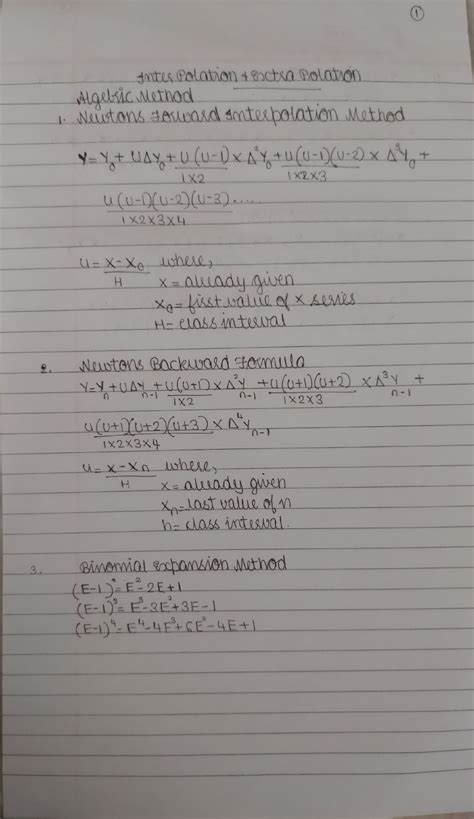 ①
Inter Polation + Extra Polation
Algebric Method
1. Newtons Forward Interpolation Method
Y = Y₀ + UΔY₀ + U(U-1)/1x2 x Δ²Y₀ + U(U-1)(U-2)/1x2x3 x Δ³Y₀ +
U(U-1)(U-2)(U-3)/1x2x3x4 .....
u = x-x₀/H where,
x = already given
x₀ = first value of x series
H = class interval
2. Newtons Backward Formula
Y = Yₙ + UΔYₙ₋₁ + U(U+1)/1x2 x Δ²Yₙ₋₁ + U(U+1)(U+2)/1x2x3 x Δ³Yₙ₋₁ +
U(U+1)(U+2)(U+3)/1x2x3x4 x Δ⁴Yₙ₋₁
u = x-xₙ/H where,
x = already given
xₙ = last value of n
h = class interval.
3. Binomial Expansion Method
(E-1)² = E²-2E+1
(E-1)³ = E³-3E²+3E-1
(E-1)⁴ = E⁴-4E³+6E²-4E+1